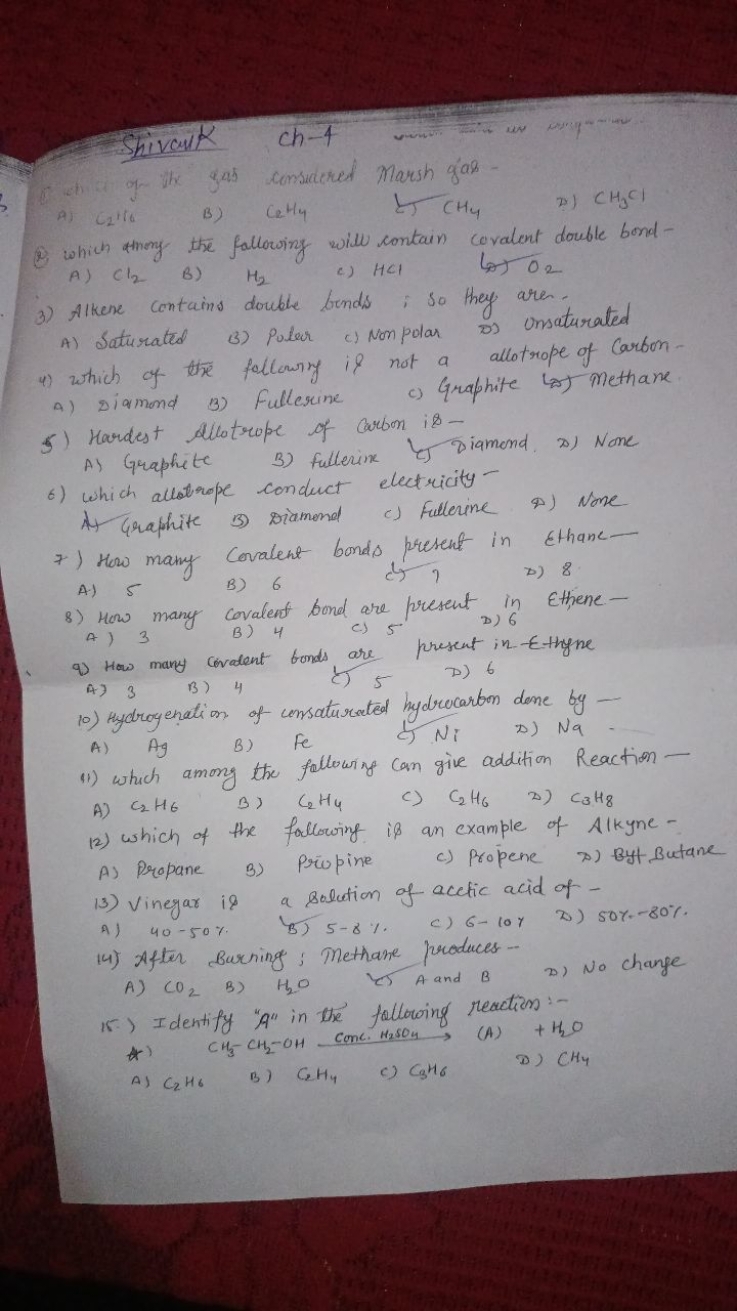 Shivank Ch-4
of the gas considered Marsh gas -
A) C2H6 B) C2H4 C) CH4 D) CH3Cl
2) which among the following will contain covalent double bond -
A) Cl2 B) H2 c) HCl D) O2
3) Alkene contains double bonds ; so they are -
A) Saturated B) Polar c) Non polar D) Unsaturated
4) which of the following is not a allotrope of Carbon -
A) Diamond B) Fullerine c) Graphite D) Methane.
5) Hardest Allotrope of Carbon is -
A) Graphite B) fullerine C) Diamond. D) None
6) which allotrope conduct electricity -
A) Graphite B) Diamond c) Fullerine D) None
7) How many Covalent bonds present in Ethane -
A) 5 B) 6 C) 7 D) 8
8) How many covalent bond are present in Ethene -
A) 3 B) 4 C) 5 D) 6
9) How many Covalent bonds are present in Ethyne
A) 3 B) 4 C) 5 D) 6
10) Hydrogenation of unsaturated hydrocarbon done by -
A) Ag B) Fe C) Ni D) Na
11) which among the following can give addition Reaction -
A) C2H6 B) C2H4 C) C2H6 D) C3H8
12) which of the following is an example of Alkyne -
A) Propane B) Propine c) Propene D) Butane
13) Vinegar is a solution of acetic acid of -
A) 40-50% B) 5-8 %. c) 6-10% D) 50%-80%.
14) After Burning ; Methane produces -
A) CO2 B) H2O C) A and B D) No change
15) Identify "A" in the following reaction :-
CH3-CH2-OH Conc. H2SO4 → (A) + H2O
A) C2H6 B) C2H4 c) C3H6 D) CH4